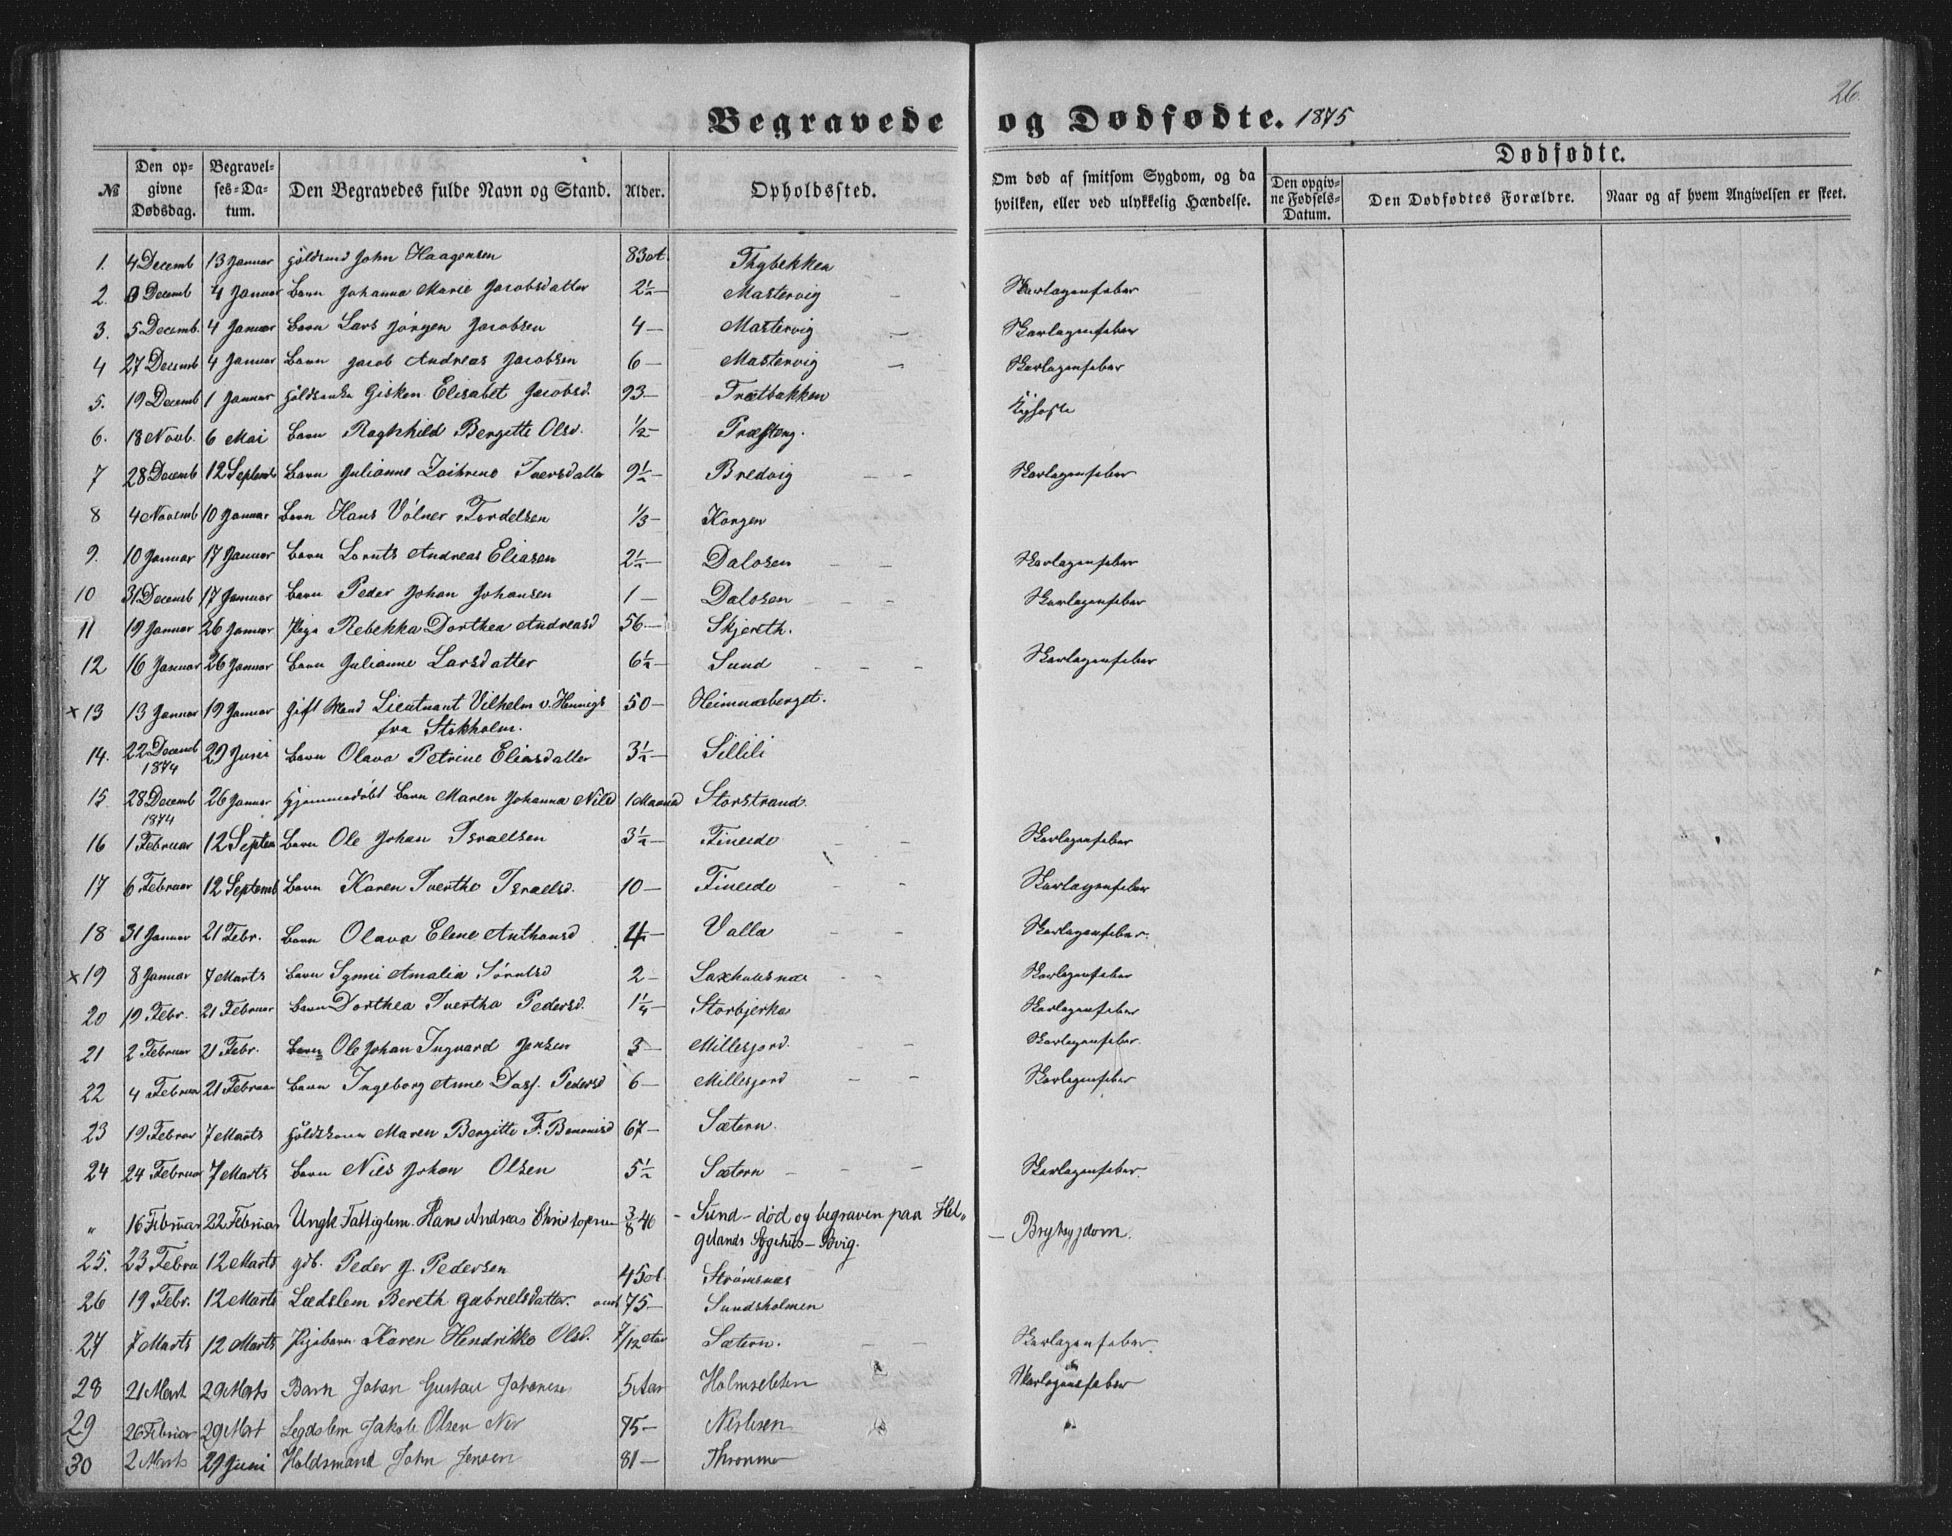 26.
Begravede og Dødfødte. 1875
Dødfødte.
№ Den opgivne Dødsdag. Begravelses-Datum. Den Begravedes fulde Navn og Stand. Alder. Opholdssted. Om død af smitsom Sygdom, og da hvilken, eller ved ulykkelig Hændelse. Den opgivne Fødsels-Datum. Den Dødfødtes Forældre. Naar og af hvem Angivelsen er skeet.
1. 4 Decemb 13 Januar John Haagensen 83 Thybekken
2. Decemb 4 Januar Barn Johanna Marie Jacobsdatter 2½ — Mastervig — Skarlagensfeber
3. 5 Decemb. 4 Januar Barn Lars Jørgen Jacobsen 4 — Mastervig — Skarlagensfeber
4 27 Decemb 4 Januar Barn Jacob Andreas Jacobsen 6 — Mastervig — Skarlagensfeber
5. 19 Decemb 1 Januar Gisken Elisabet Jacobsd. 93 — Trætbakken
6. 18 Novb. 6 Mai Barn Raghhild Bergitte Olsd. ½ — Præsteng. Kighoste
7 28 Decemb 12 Septemb Barn Julianne Iversdatter 9½ — Bredvig — — Skarlagensfeber
8 4 Novemb 10 Januar Barn Hans Vølner Tordelsen ⅓ — Korgen
9. 10 Januar 17 Januar Barn Lornts Andreas Eliasen 2½ — Dalosen — — Skarlagensfeber
10 31 Decemb 17 Januar Barn Peder Johan Johansen 1 — Dalosen — — Skarlagensfeber
11 19 Januar 26 Januar Pige Rebekka Dorthea Andreasd 56 — Skjereth.
12 16 Januar 26 Januar Barn Julianne Larsdatter 6½ — Sund — — — Skarlagensfeber
x 13 13 Januar 19 Januar Gift Mand Lieutnant Vilhelm v. Hennigs 50 — Heimnæsberget.
fra Stokholm.
14. 22 Decemb 1874 29 Juni Barn Olava Petrine Eliasdatter 3½ — Sillili
15 28 Decemb 1874 26 Januar Hjemmedøbt Barn Maren Johanna Nilsd 1 Maaned Storstrand
16 1 Februar 12 Septem Barn Ole Johan Israelsen 3½ — Fineide — — Skarlagensfeber
17 6 Februar 12 Septemb Barn Karen Iverthe Israelsd. 10 — Fineide — — Skarlagensfeber
18 31 Januar 21 Febr. Barn Olava Elene Anthonsd 4 — Valla — — Skarlagensfeber.
x 19 8 Januar 7 Marts Barn Synni Amalia 2 — Laxhusnæs — — Skarlagensfeber
20 19 Febr. 21 Februar Barn Dorthea Ivertha Pedersd. 1¼ — Storbjerka Skarlagensfeber
21 2 Februar 21 Febr. Barn Ole Johan Ingvard Jensen 3 — Millesjord. — — Skarlagensfeber.
22 4 Februar 21 Februar Barn Ingeborg Anne Dass. Pedersd 6 — Millesjord — — Skarlagensfeber
23 19 Februar 7 Marts Holdskone Maren Bergitte F. 67 — Sætern.
24 24 Februar 7 Marts Barn Nils Johan Olsen 5½ Sætern — — — Skarlagensfeber.
„ 16 Februar 22 Februar Ungk Fattiglem. Hans Andreas Christophersen ⅜ 40 — Sund — død og begraven paa Hel- — Brystsygdom.
gelands Sygehus — Bvig.
25. 23 Februar 12 Marts gdb. Peder J. Pedersen 45 Strømsnæs
26 19 Febr. 12 Marts Lædslem Bereth Gabrielsdatter. 75 — Sundsholmen
27 7 Marts 12 Marts Pigebarn Karen Hendrikke Olsd. 7/12 Aar Sætern. — — Skarlagensfeber.
28 21 Mart 29 Marts Barn Johan Gustav Johansen 5 Aar Holmsleten Skarlagensfeber
29 26 Februar 29 Mart Legdslem Jakob Olsen 75 — Nerleren
30 2 Marts 29 Juni Holdsmand John Jensen 81 — Thronmo